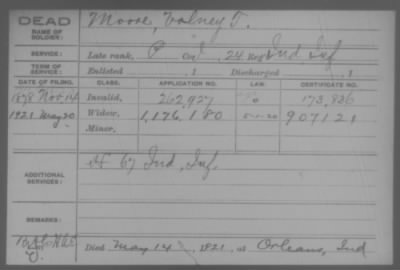 DEAD
NAME OF SOLDIER: Moore, Volney T.
SERVICE: Late rank, P Co. I, 24 Reg't Ind Inf
TERM OF SERVICE: Enlisted , 1 Discharged , 1
DATE OF FILING. CLASS. APPLICATION NO. LAW. CERTIFICATE NO.
1878 Nov 14 Invalid, 262,927 173,836
1921 May 20 Widow, 1,176,180 5-1-20 907121
Minor,
ADDITIONAL SERVICES: H 67 Ind, Inf.
REMARKS:
Died May 14, 1821, at Orleans, Ind